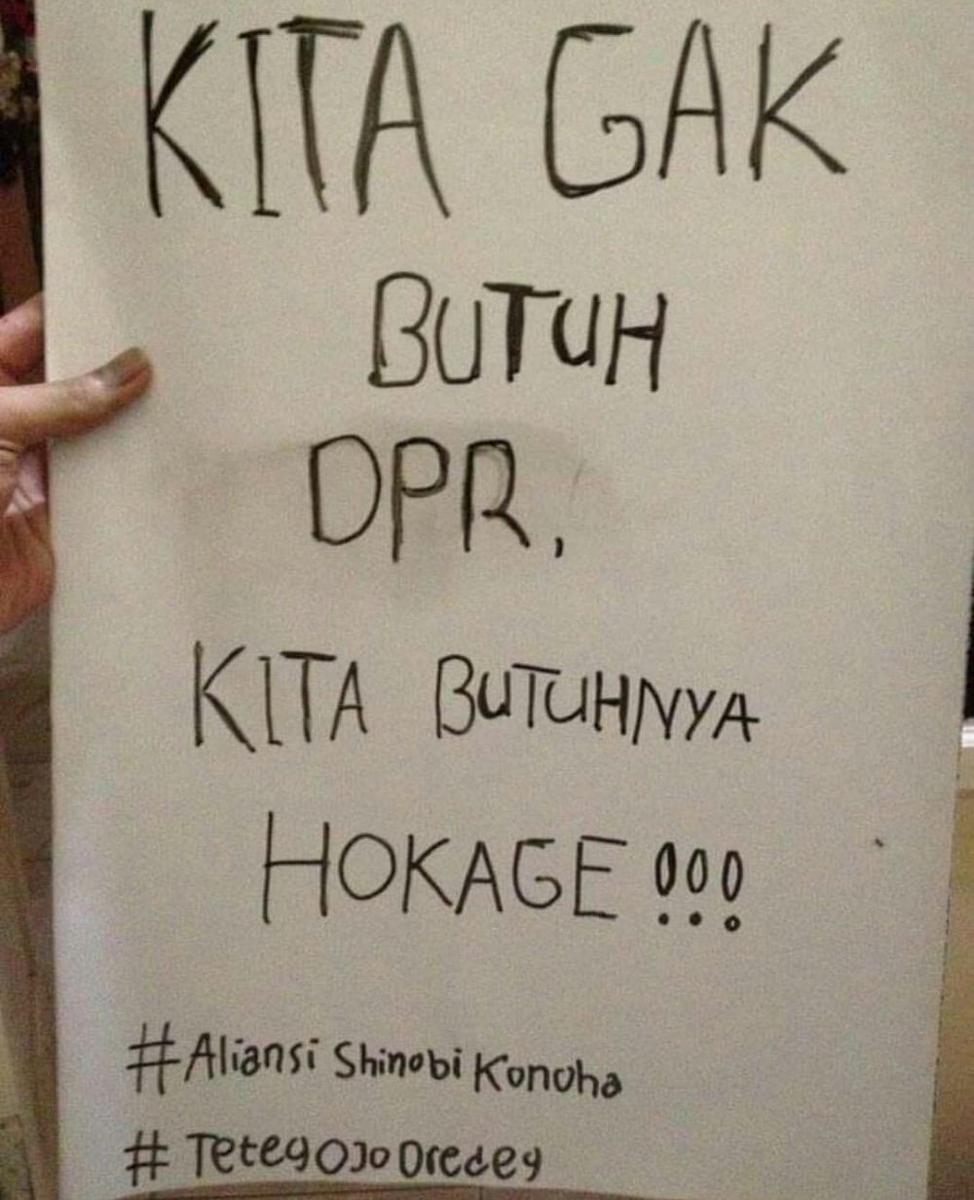 KITA GAK
BUTUH
DPR,
KITA BUTUHNYA
HOKAGE !!!
#Aliansi Shinobi Konoha
# Teteg Ojo Dredeg